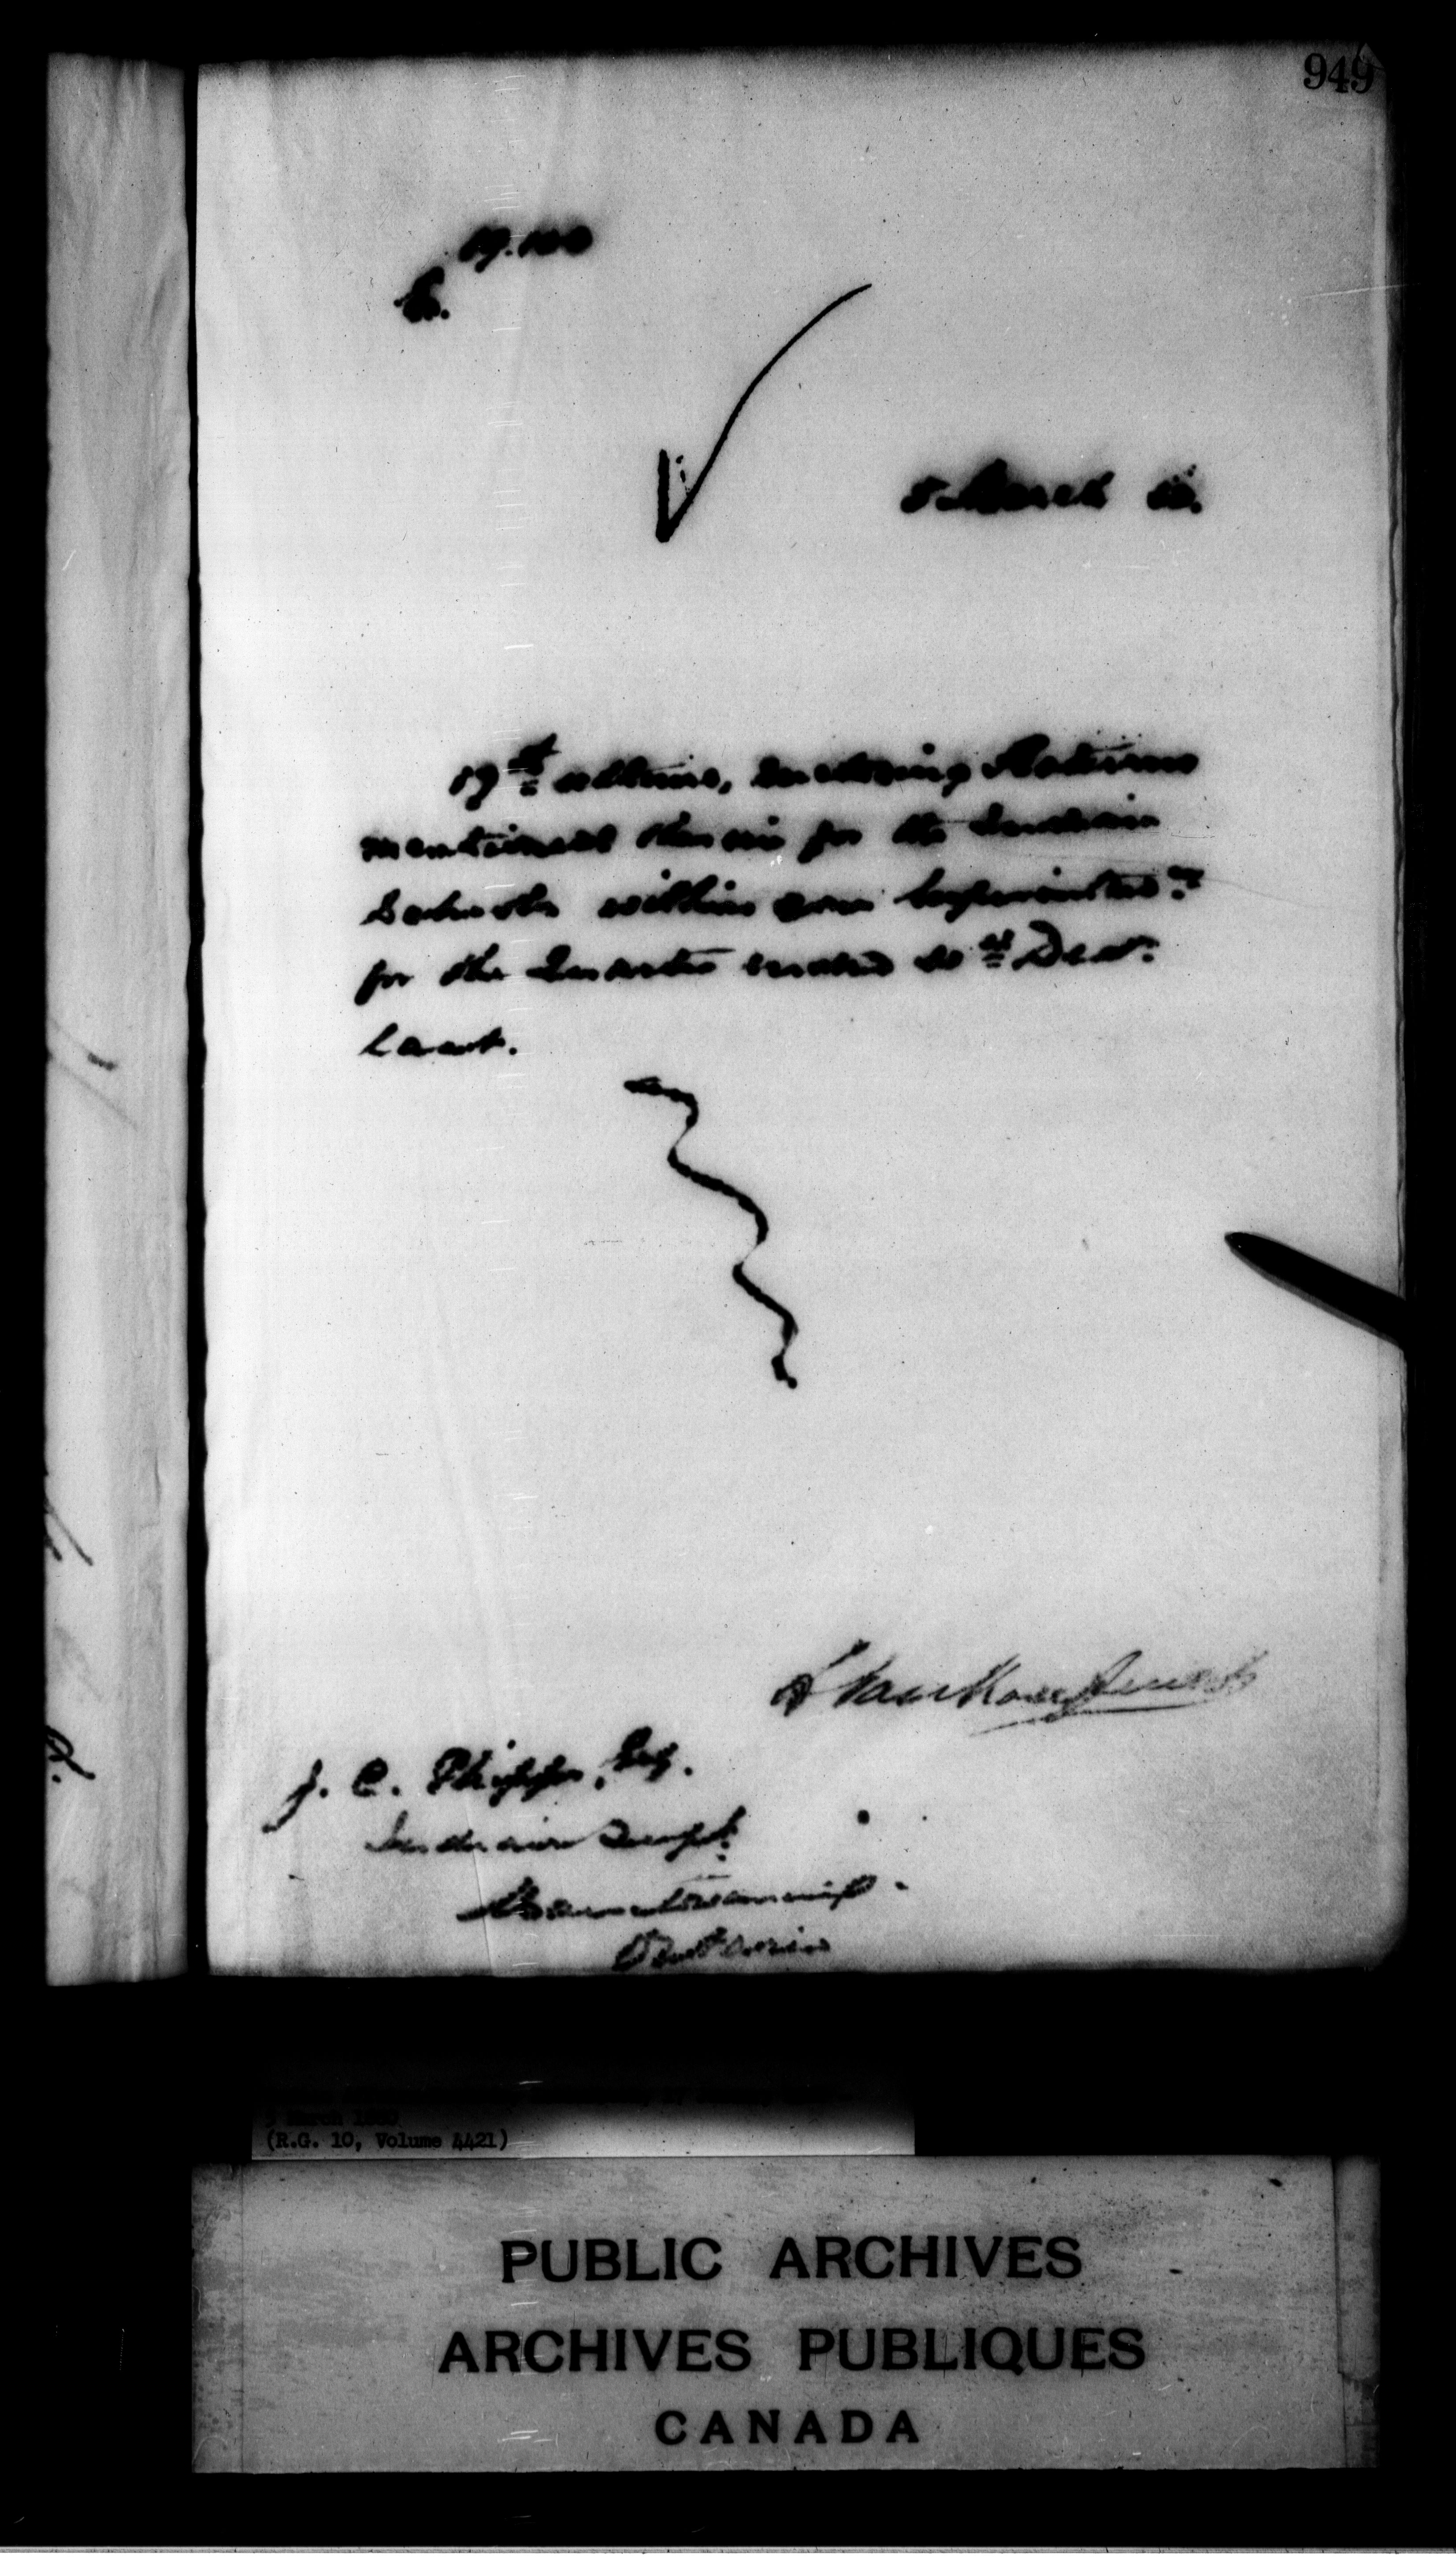 949
19.100
5 March 80.
19th ultimo, enclosing Returns
mentioned therein for the Indian
Schools within your Superintcy
for the Quarter ended 31st Decr.
last.
L VanKoughnet
J. C. Phipps, Esq.
Indian Supt.
Manitowaning.
Ontario
March 1880
(R.G. 10, Volume 4421)
PUBLIC ARCHIVES
ARCHIVES PUBLIQUES
CANADA